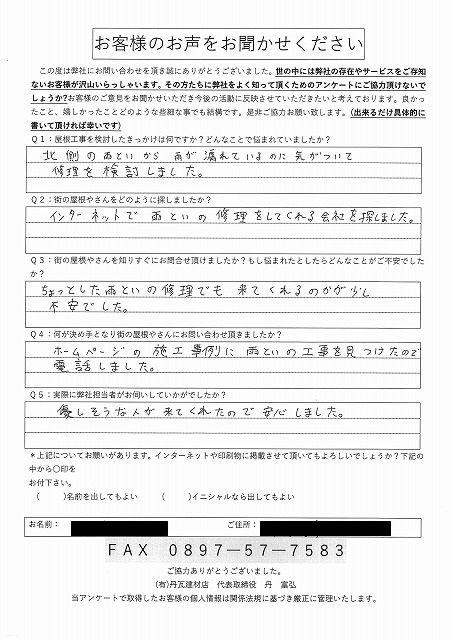 お客様のお声をお聞かせください
この度は弊社にお問い合わせを頂き誠にありがとうございました。世の中には弊社の存在やサービスをご存知
ないお客様が沢山いらっしゃいます。その方たちに弊社をよく知って頂くためのアンケートにご協力頂けないで
しょうか?お客様のご意見をお聞かせいただき今後の活動に反映させていただきたいと考えております。良かっ
たこと、嬉しかったことどのような些細な事でも結構です。是非ご協力お願い致します。(出来るだけ具体的に
書いて頂ければ幸いです)
Q1:屋根工事を検討したきっかけは何ですか?どんなことで悩まれていましたか?
北側の雨といから雨が漏れているのに気がついて
修理を検討しました。
Q2:街の屋根やさんをどのように探しましたか?
インターネットで雨といの修理をしてくれる会社を探しました。
Q3:街の屋根やさんを知りすぐにお問合せ頂けましたか?もし悩まれたとしたらどんなことがご不安でした
か?
ちょっとした雨といの修理でも来てくれるのかが少し
不安でした。
Q4:何が決め手となり街の屋根やさんにお問い合わせ頂きましたか?
ホームページの施工事例に雨といの工事を見つけたので
電話しました。
Q5:実際に弊社担当者がお伺いしていかがでしたか?
優しそうな人が来てくれたので安心しました。
*上記についてお願いがあります。インターネットや印刷物に掲載させて頂いてもよろしいでしょうか?下記の
中から〇印を
お付下さい。
( )名前を出してもよい ( )イニシャルなら出してもよい
お名前: ご住所:
FAX 0897-57-7583
ご協力ありがとうございました。
(有)丹瓦建材店 代表取締役 丹 富弘
当アンケートで取得したお客様の個人情報は関係法規に基づき厳正に管理いたします。